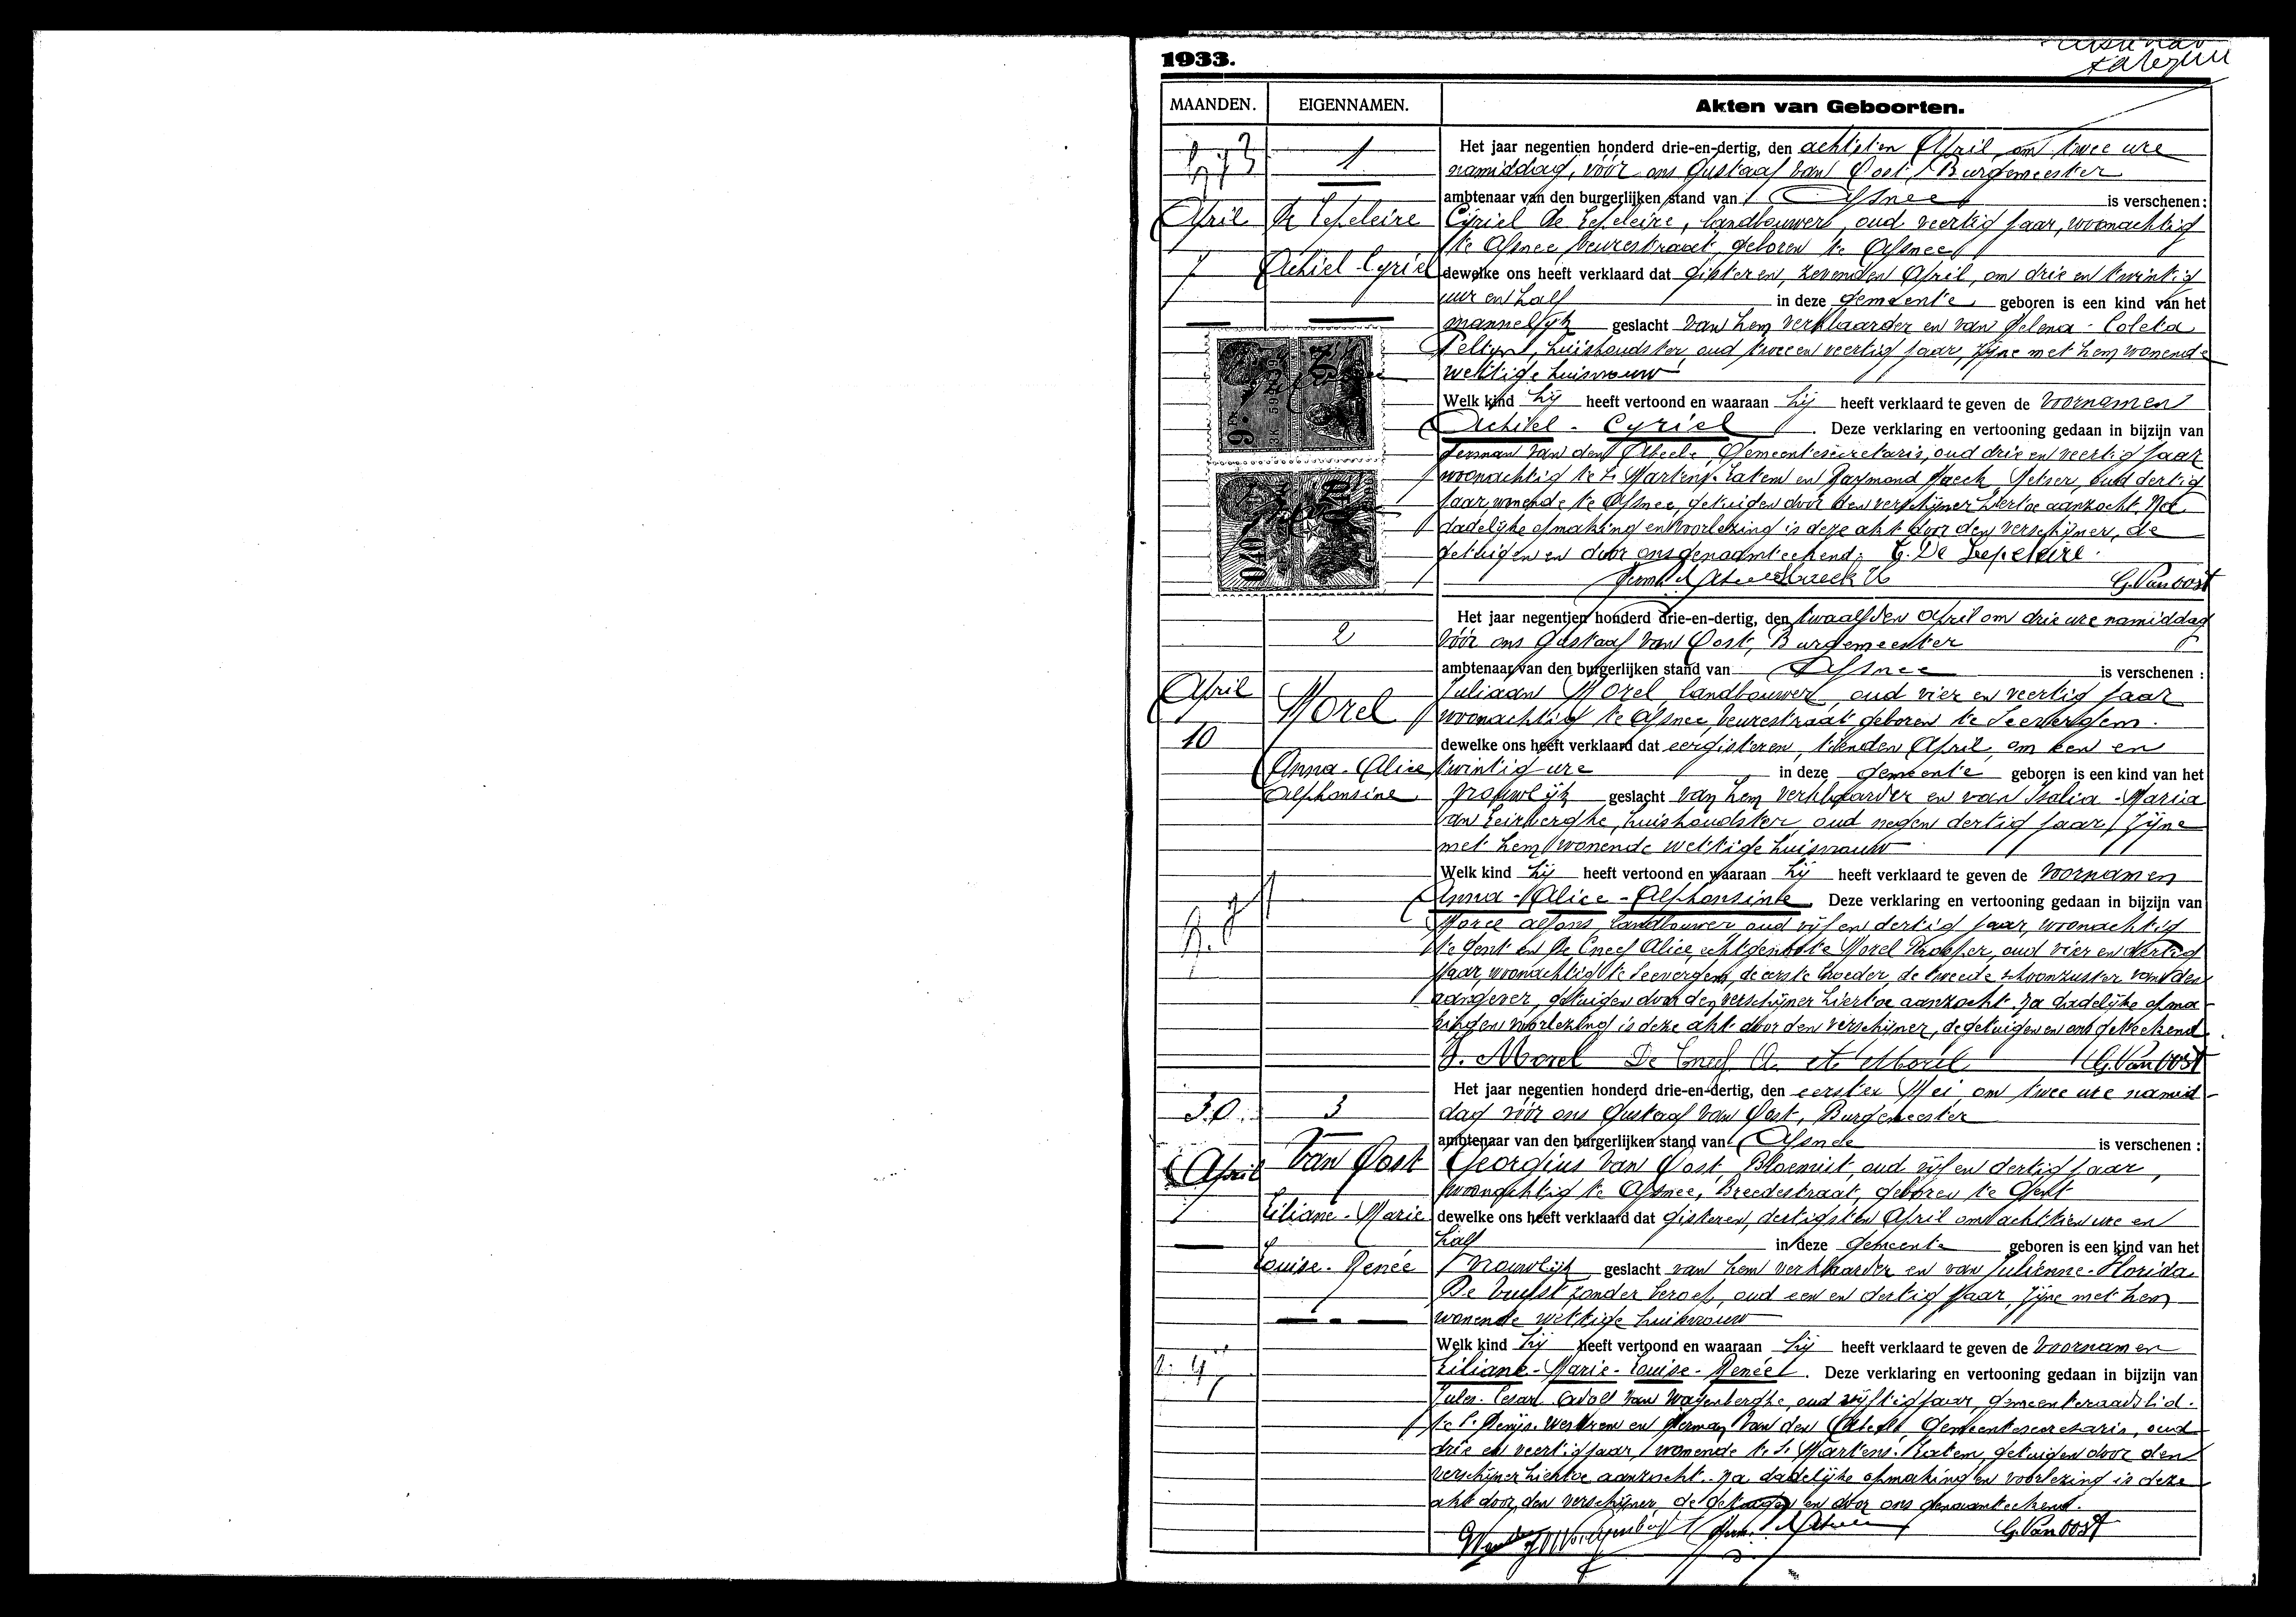 1933.
MAANDEN. EIGENNAMEN. Akten van Geboorten.
1
April
De Lepeleire
7
Achiel-Cyriel
Het jaar negentien honderd drie-en-dertig, den achtsten April om twee ure
namiddag, vóór ons Gustaaf Van Oost, Burgemeester
ambtenaar van den burgerlijken stand van Afsnee is verschenen:
Cyriel De Lepeleire, landbouwer, oud veertig jaar, woonachtig
te Afsnee, Veurestraat, geboren te Afsnee
dewelke ons heeft verklaard dat gisteren, zevenden April, om drie en twintig
uur en half in deze gemeente geboren is een kind van het
mannelijk geslacht van hem verklaarder en van Helena-Coleta
huishoudster, oud twee en veertig jaar, zijne met hem wonende
wettige huisvrouw
Welk kind hij heeft vertoond en waaraan hij heeft verklaard te geven de voornamen
Achiel-Cyriel. Deze verklaring en vertooning gedaan in bijzijn van
Herman Van den Abeele, Gemeentesecretaris, oud drie en veertig jaar
woonachtig te St Martens-Latem en Raymond Haeck, oud dertig
jaar, wonende te Afsnee, getuigen door den verschijner hiertoe aanzocht. Na
dadelijke opmaking en voorlezing is deze akt door den verschijner, de
getuigen en door ons genaamteekend. C. De Lepeleire.
Haeck R G. Van Oost
2
April
Morel
10
Anna-Alice
Alphonsine
Het jaar negentien honderd drie-en-dertig, den twaalfden April om drie ure namiddag
vóór ons Gustaaf Van Oost, Burgemeester
ambtenaar van den burgerlijken stand van Afsnee is verschenen:
Juliaan Morel, landbouwer, oud vier en veertig jaar
woonachtig te Afsnee, Veurestraat, geboren te Seevergem.
dewelke ons heeft verklaard dat eergisteren, tienden April, om een en
twintig ure in deze gemeente geboren is een kind van het
vrouwlijk geslacht van hem verklaarder en van Isalia-Maria
Van Leirberghe, huishoudster, oud negen dertig jaar, zijne
met hem wonende wettige huisvrouw
Welk kind hij heeft vertoond en waaraan hij heeft verklaard te geven de voornamen
Anna-Alice-Alphonsine. Deze verklaring en vertooning gedaan in bijzijn van
Morel Alfons, landbouwer, oud vijf en dertig jaar, woonachtig
te Gent en De Cneef Alice, echtgenoote Morel Prosper, oud vier en dertig
jaar, woonachtig te Seevergem, de eerste broeder, de tweede schoonzuster van den
aangever, getuigen door den verschijner hiertoe aanzocht. Na dadelijke opma-
king en voorlezing is deze akt door den verschijner, de getuigen en ons geteekend.
J. Morel De Cneef A. A. Morel G. Van Oost
30
3
April
Van Oost
Liliane-Marie
Louise-Renée
Het jaar negentien honderd drie-en-dertig, den eersten Mei, om twee ure namid-
dag vóór ons Gustaaf Van Oost, Burgemeester
ambtenaar van den burgerlijken stand van Afsnee is verschenen:
Georgius Van Oost, Bloemist, oud vijf en dertig jaar,
woonachtig te Afsnee, Breedestraat, geboren te Gent
dewelke ons heeft verklaard dat gisteren, dertigsten April om achttien ure en
half in deze gemeente geboren is een kind van het
vrouwlijk geslacht van hem verklaarder en van Julienne-Florida
De Vuyst zonder beroep, oud een en dertig jaar, zijne met hem
wonende wettige huisvrouw
Welk kind hij heeft vertoond en waaraan hij heeft verklaard te geven de voornamen
Liliane-Marie-Louise-Renée. Deze verklaring en vertooning gedaan in bijzijn van
Cesar Van Wayenberghe, oud vijftig jaar, gemeenteraadslid.
te St Denijs-Westrem en Herman Van den Abeele, Gemeentesecretaris, oud
drie en veertig jaar, wonende te St Martens-Latem, getuigen door den
verschijner hiertoe aanzocht. Na dadelijke opmaking en voorlezing is deze
akt door den verschijner, de getuigen en door ons genaamteekend.
G. Van Oost